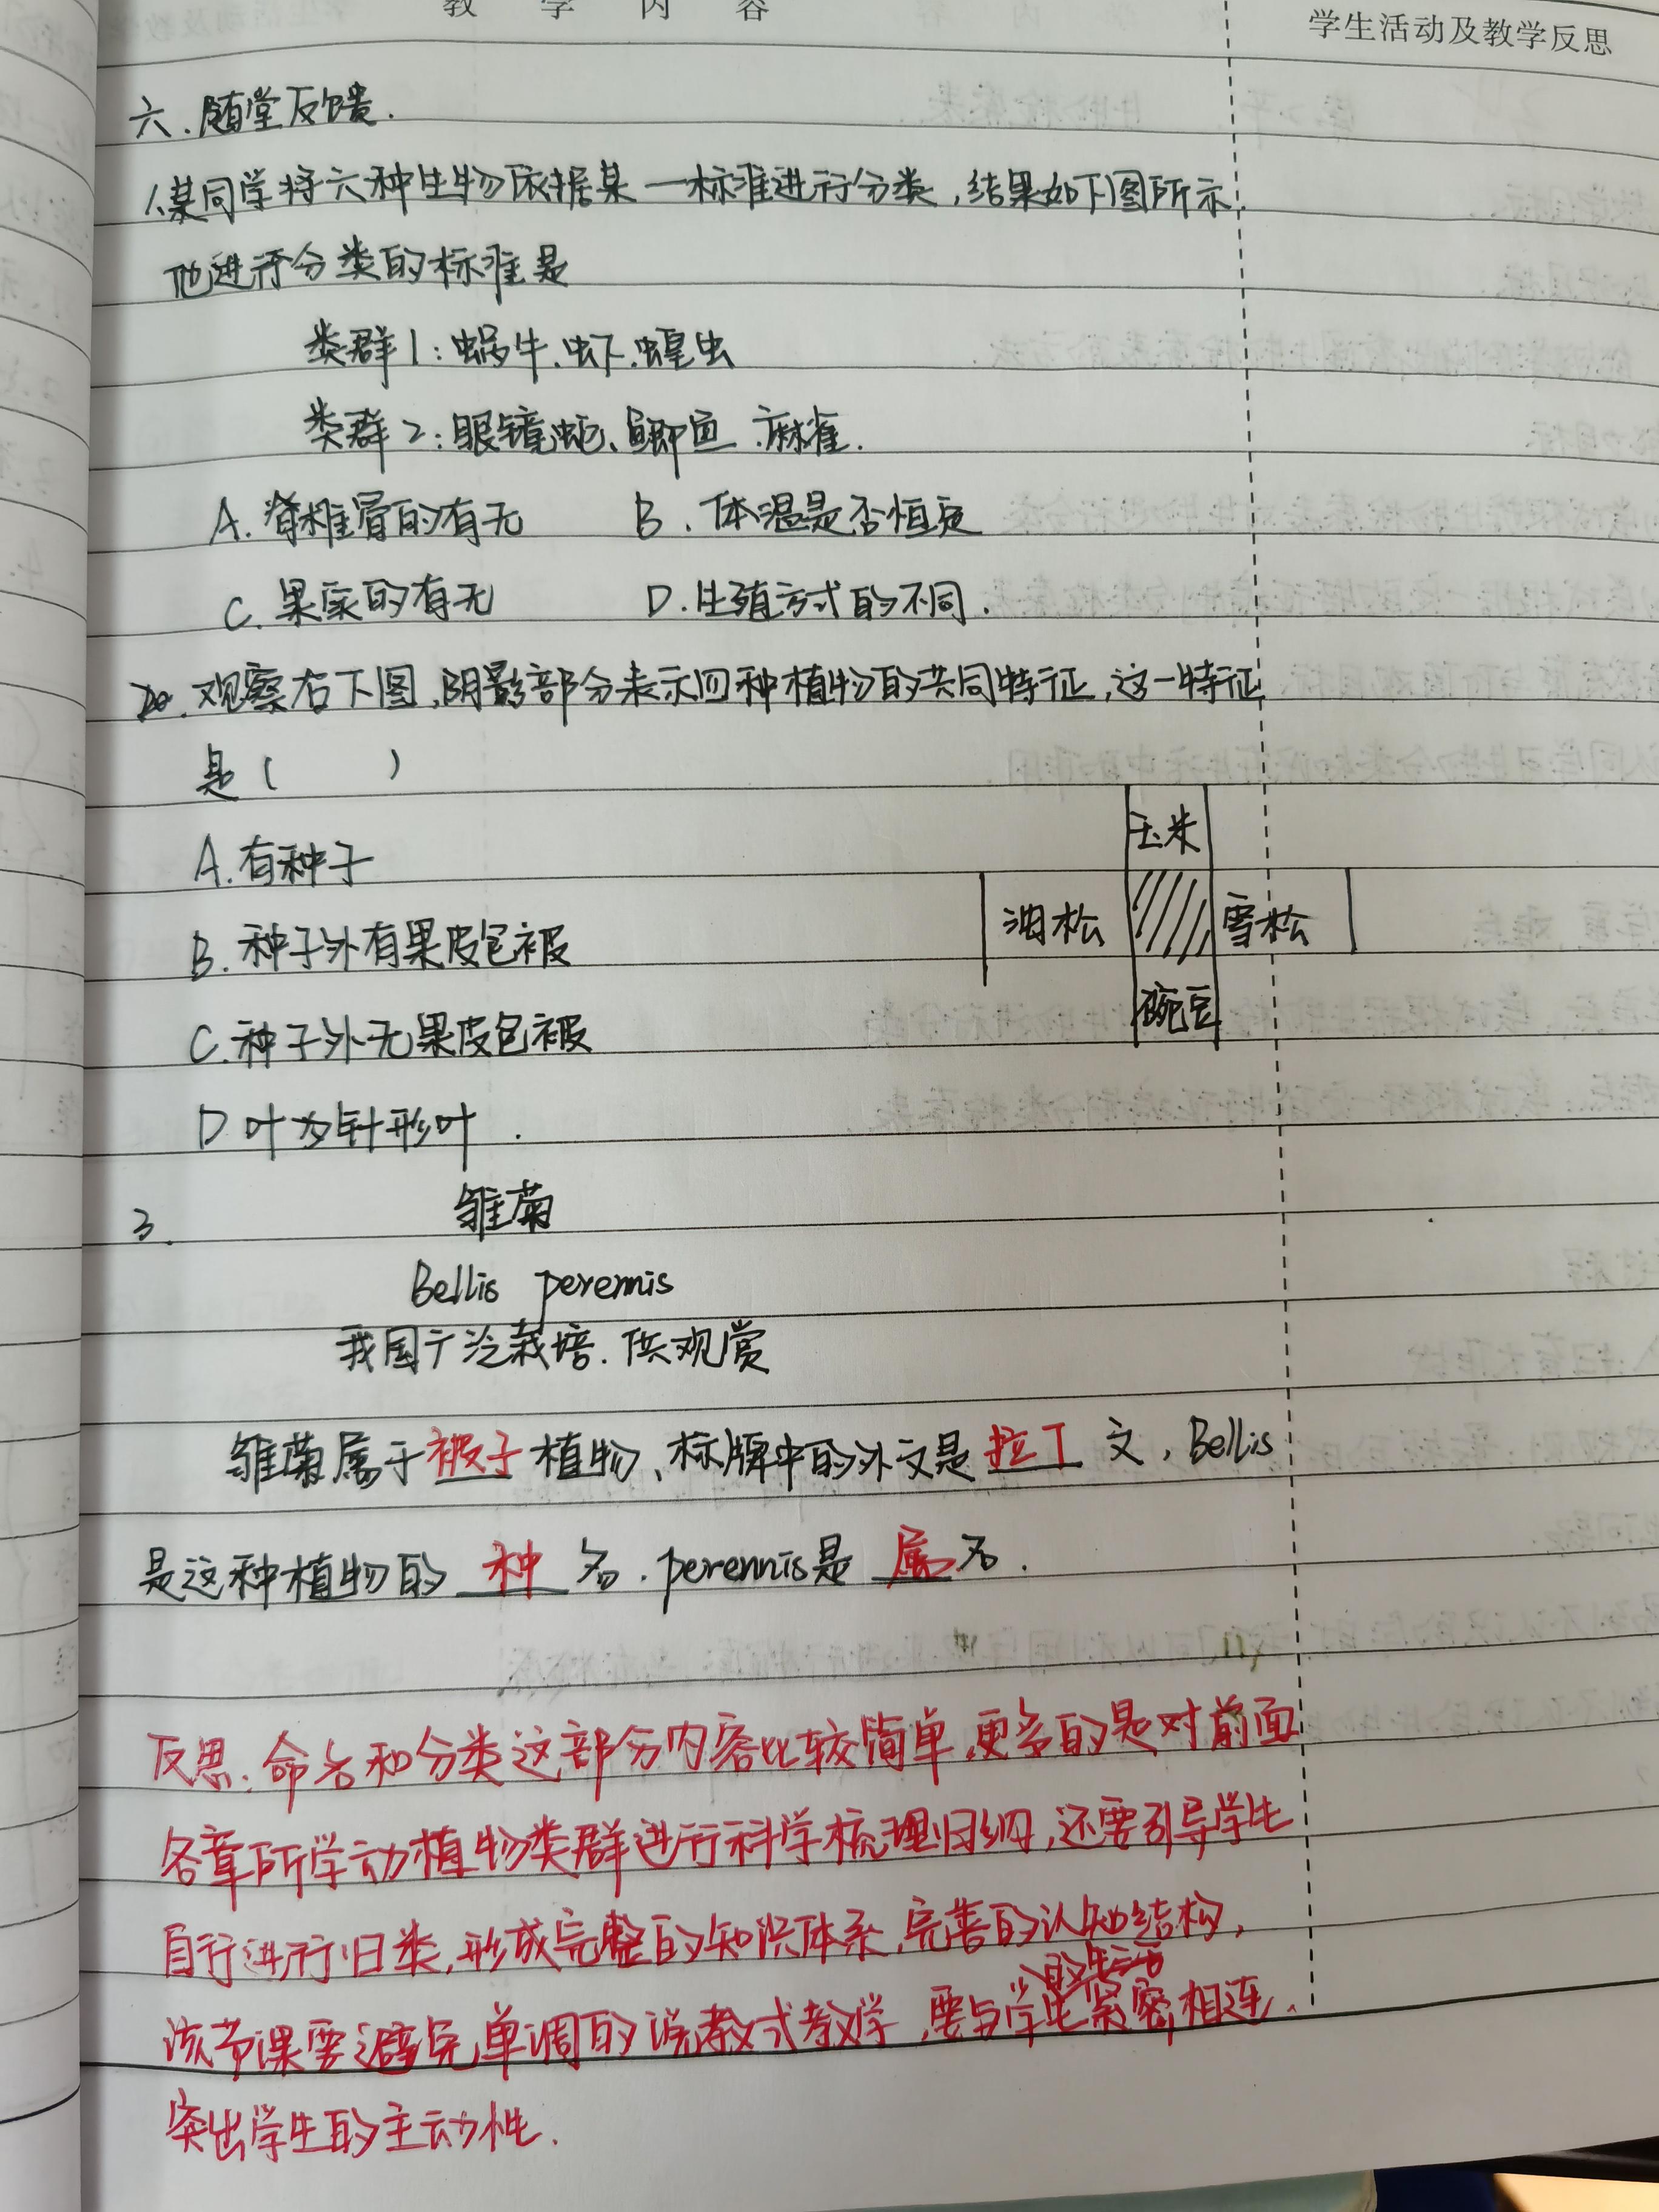 教 学 内 容
学生活动及教学反思
六、随堂反馈.
1、某同学将六种生物依据某一标准进行分类,结果如下图所示,
他进行分类的标准是
类群1:蜗牛、虾、蝗虫
类群2:眼镜蛇、鲫鱼、麻雀.
A.脊椎骨的有无 B.体温是否恒定
C.果实的有无 D.生殖方式的不同.
2.观察右下图,阴影部分表示四种植物的共同特征,这一特征
是( )
A.有种子
B.种子外有果皮包被
C.种子外无果皮包被
D叶为针形叶.
玉米
油松 雪松
豌豆
3. 雏菊
Bellis perennis
我国广泛栽培.供观赏
雏菊属于被子植物、标牌中的外文是拉丁文,Bellis
是这种植物的 种 名.perennis是 属名.
反思:命名和分类这部分内容比较简单,更多的是对前面
各章所学动植物类群进行科学梳理归纳,还要引导学生
自行进行归类,形成完整的知识体系,完善的认知结构,
该节课要避免单调的说教式教学,要与学生的生活紧密相连.
突出学生的主动性.